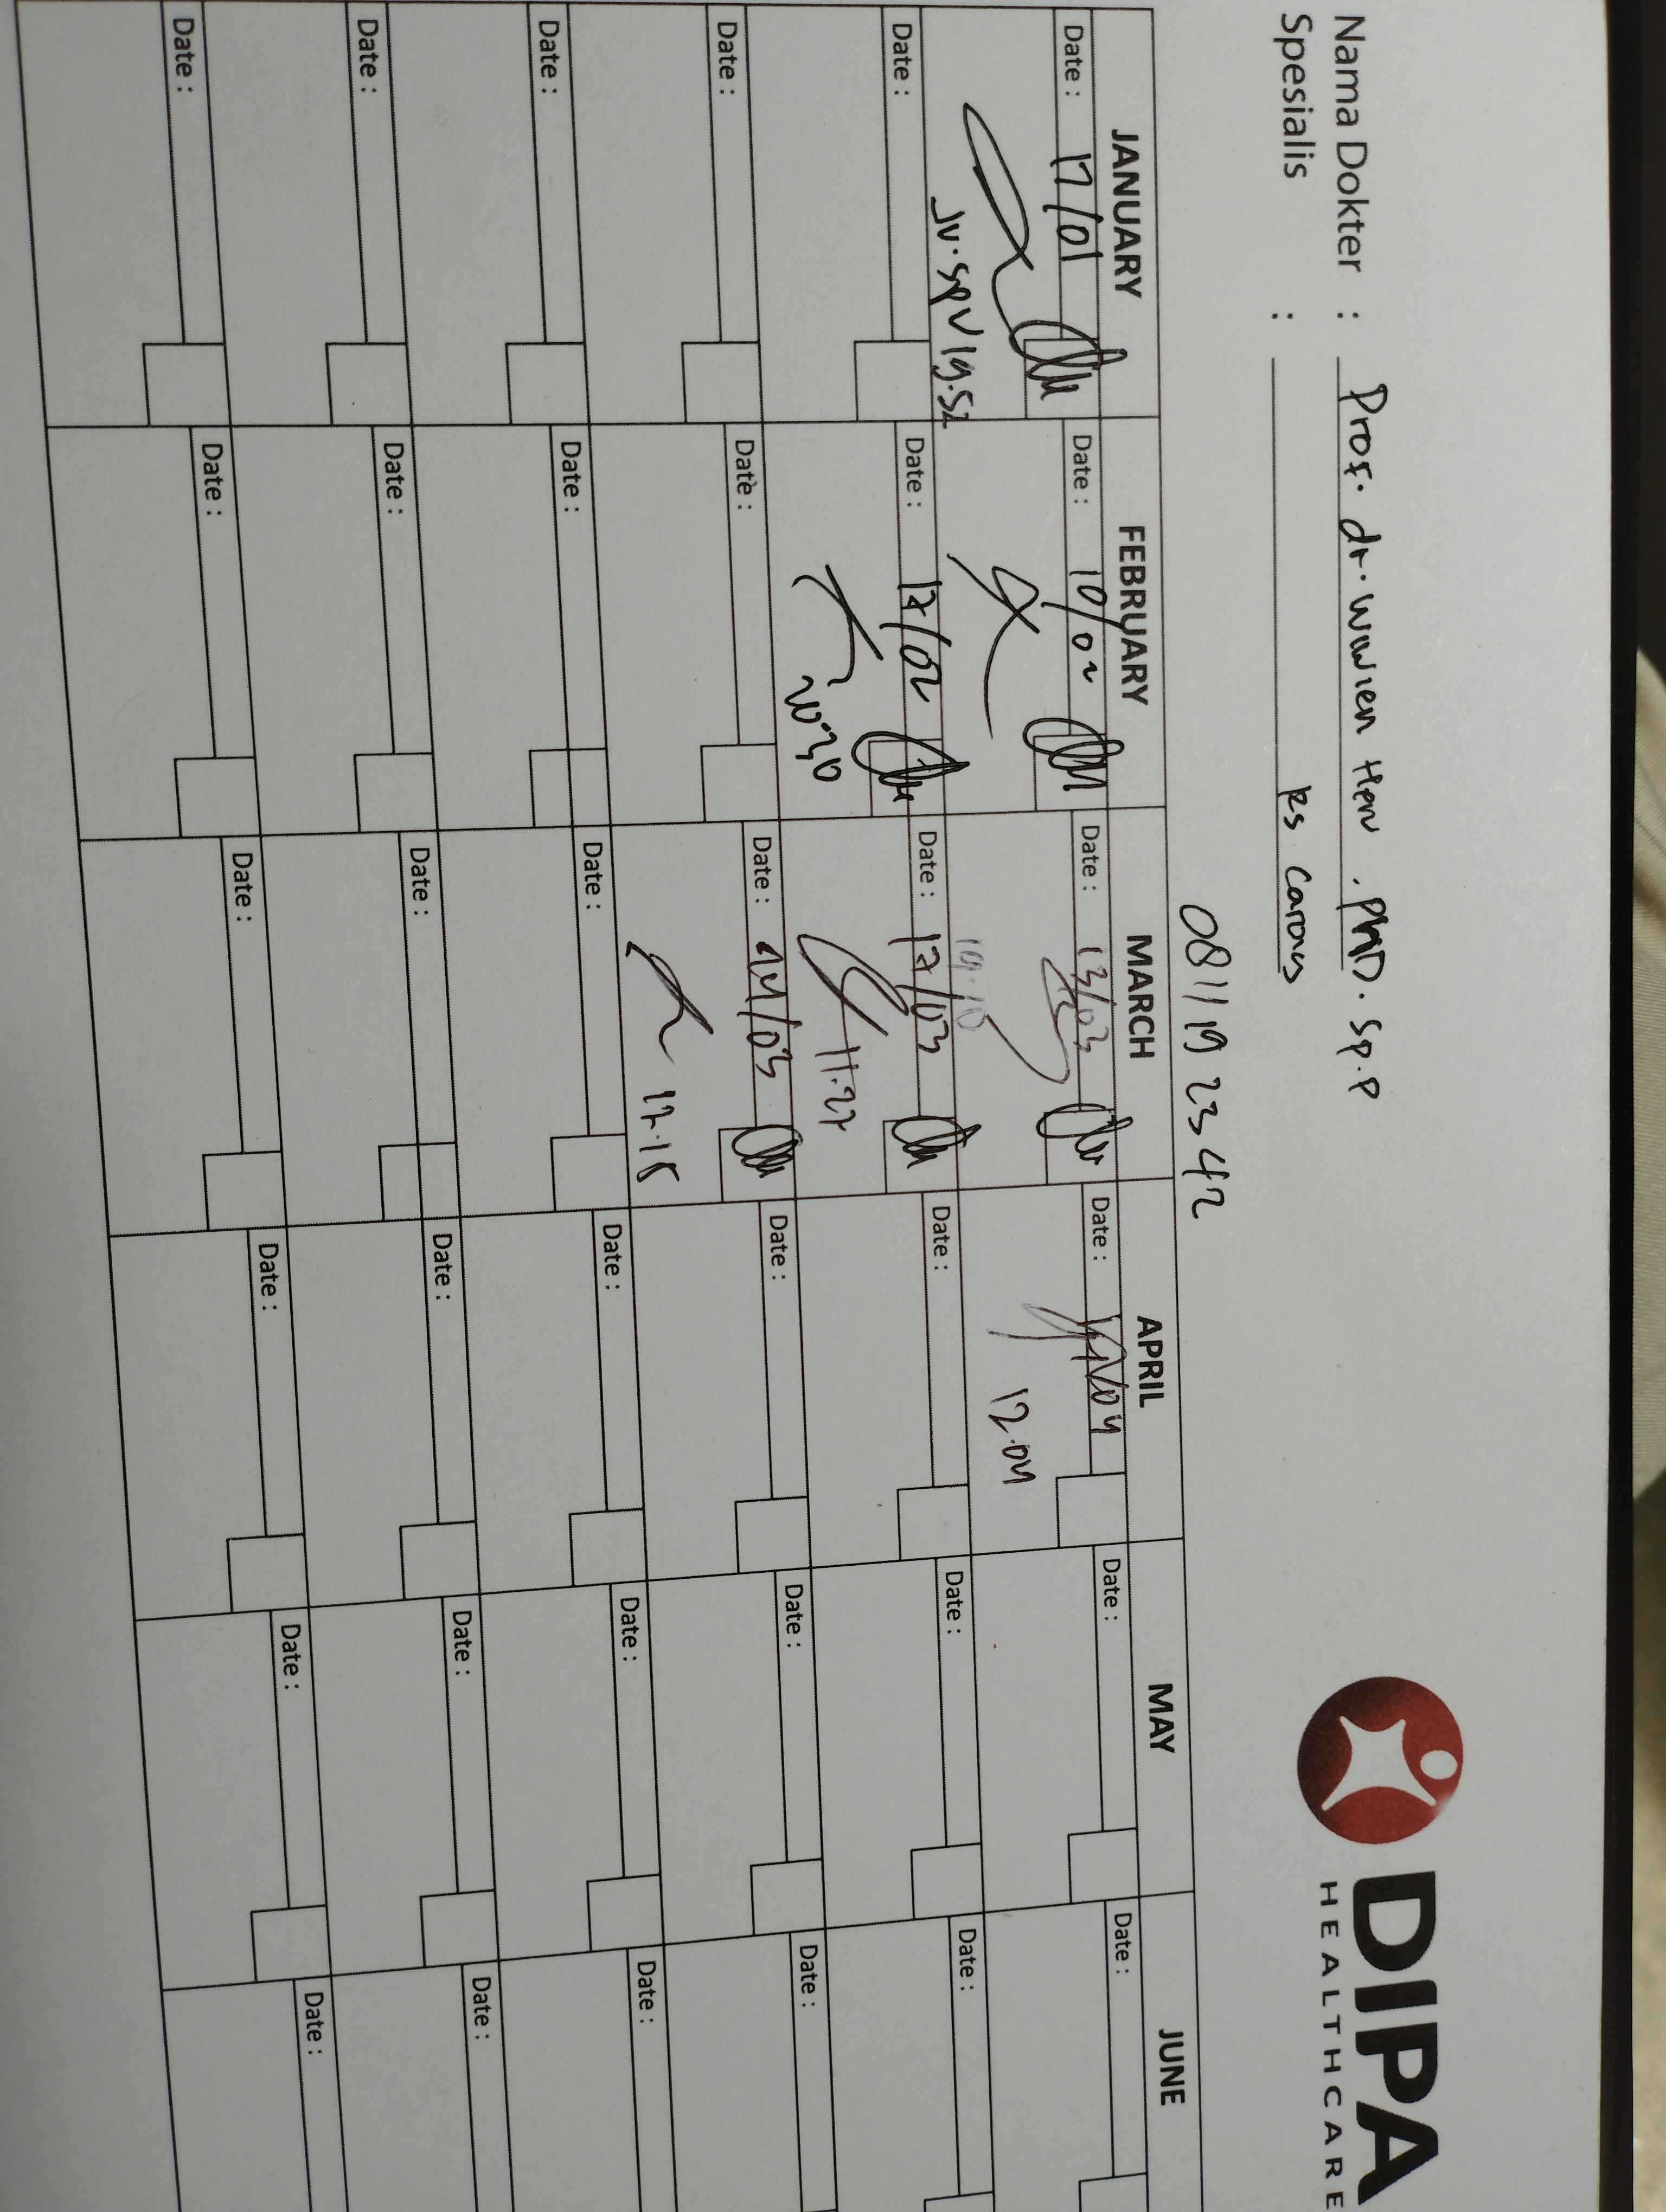 Nama Dokter : Prof. dr. Wiwien Heru . PhD. Sp.P
Spesialis : RS Carolus
DIPA
HEALTHCARE
0811 19 23 42
JANUARY FEBRUARY MARCH APRIL MAY JUNE
Date : 17/01 Date : 10/02 Date : 13/03 Date : 14/04 Date : Date :
JV. SPV 19.52 19.10 12.04
Date : Date : 17/02 Date : 17/03 Date : Date : Date :
20.30 11.27
Date : Date : Date : 24/03 Date : Date : Date :
17.18
Date : Date : Date : Date : Date : Date :
Date : Date : Date : Date : Date : Date :
Date : Date : Date : Date : Date : Date :